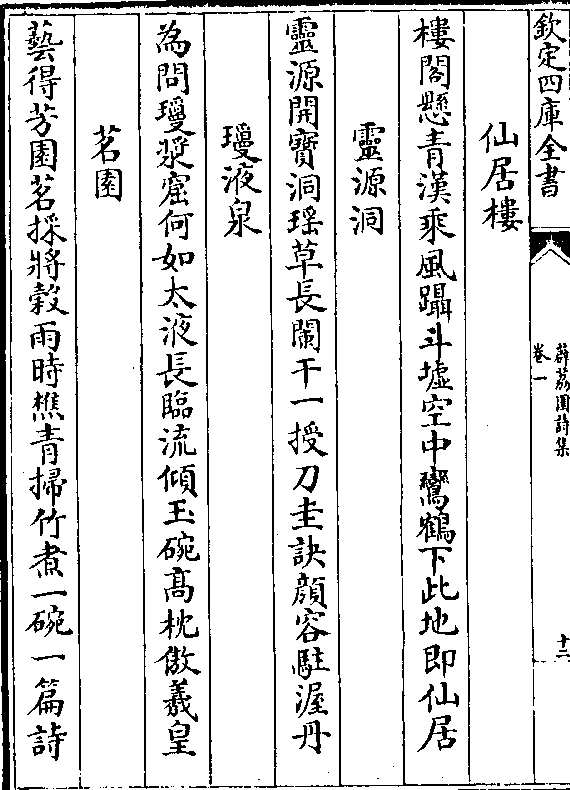 欽定四庫全書
薜荔園詩集
卷一
十二
仙居樓
樓閣懸青漢乘風躡斗墟空中鸞鶴下此地即仙居
靈源洞
靈源開寳洞瑶草長闌干一授刀圭訣顔容駐渥丹
瓊液泉
為問瓊漿窟何如太液長臨流傾玉碗髙枕傲羲皇
茗園
藝得芳園茗採將穀雨時樵青掃竹煮一碗一篇詩